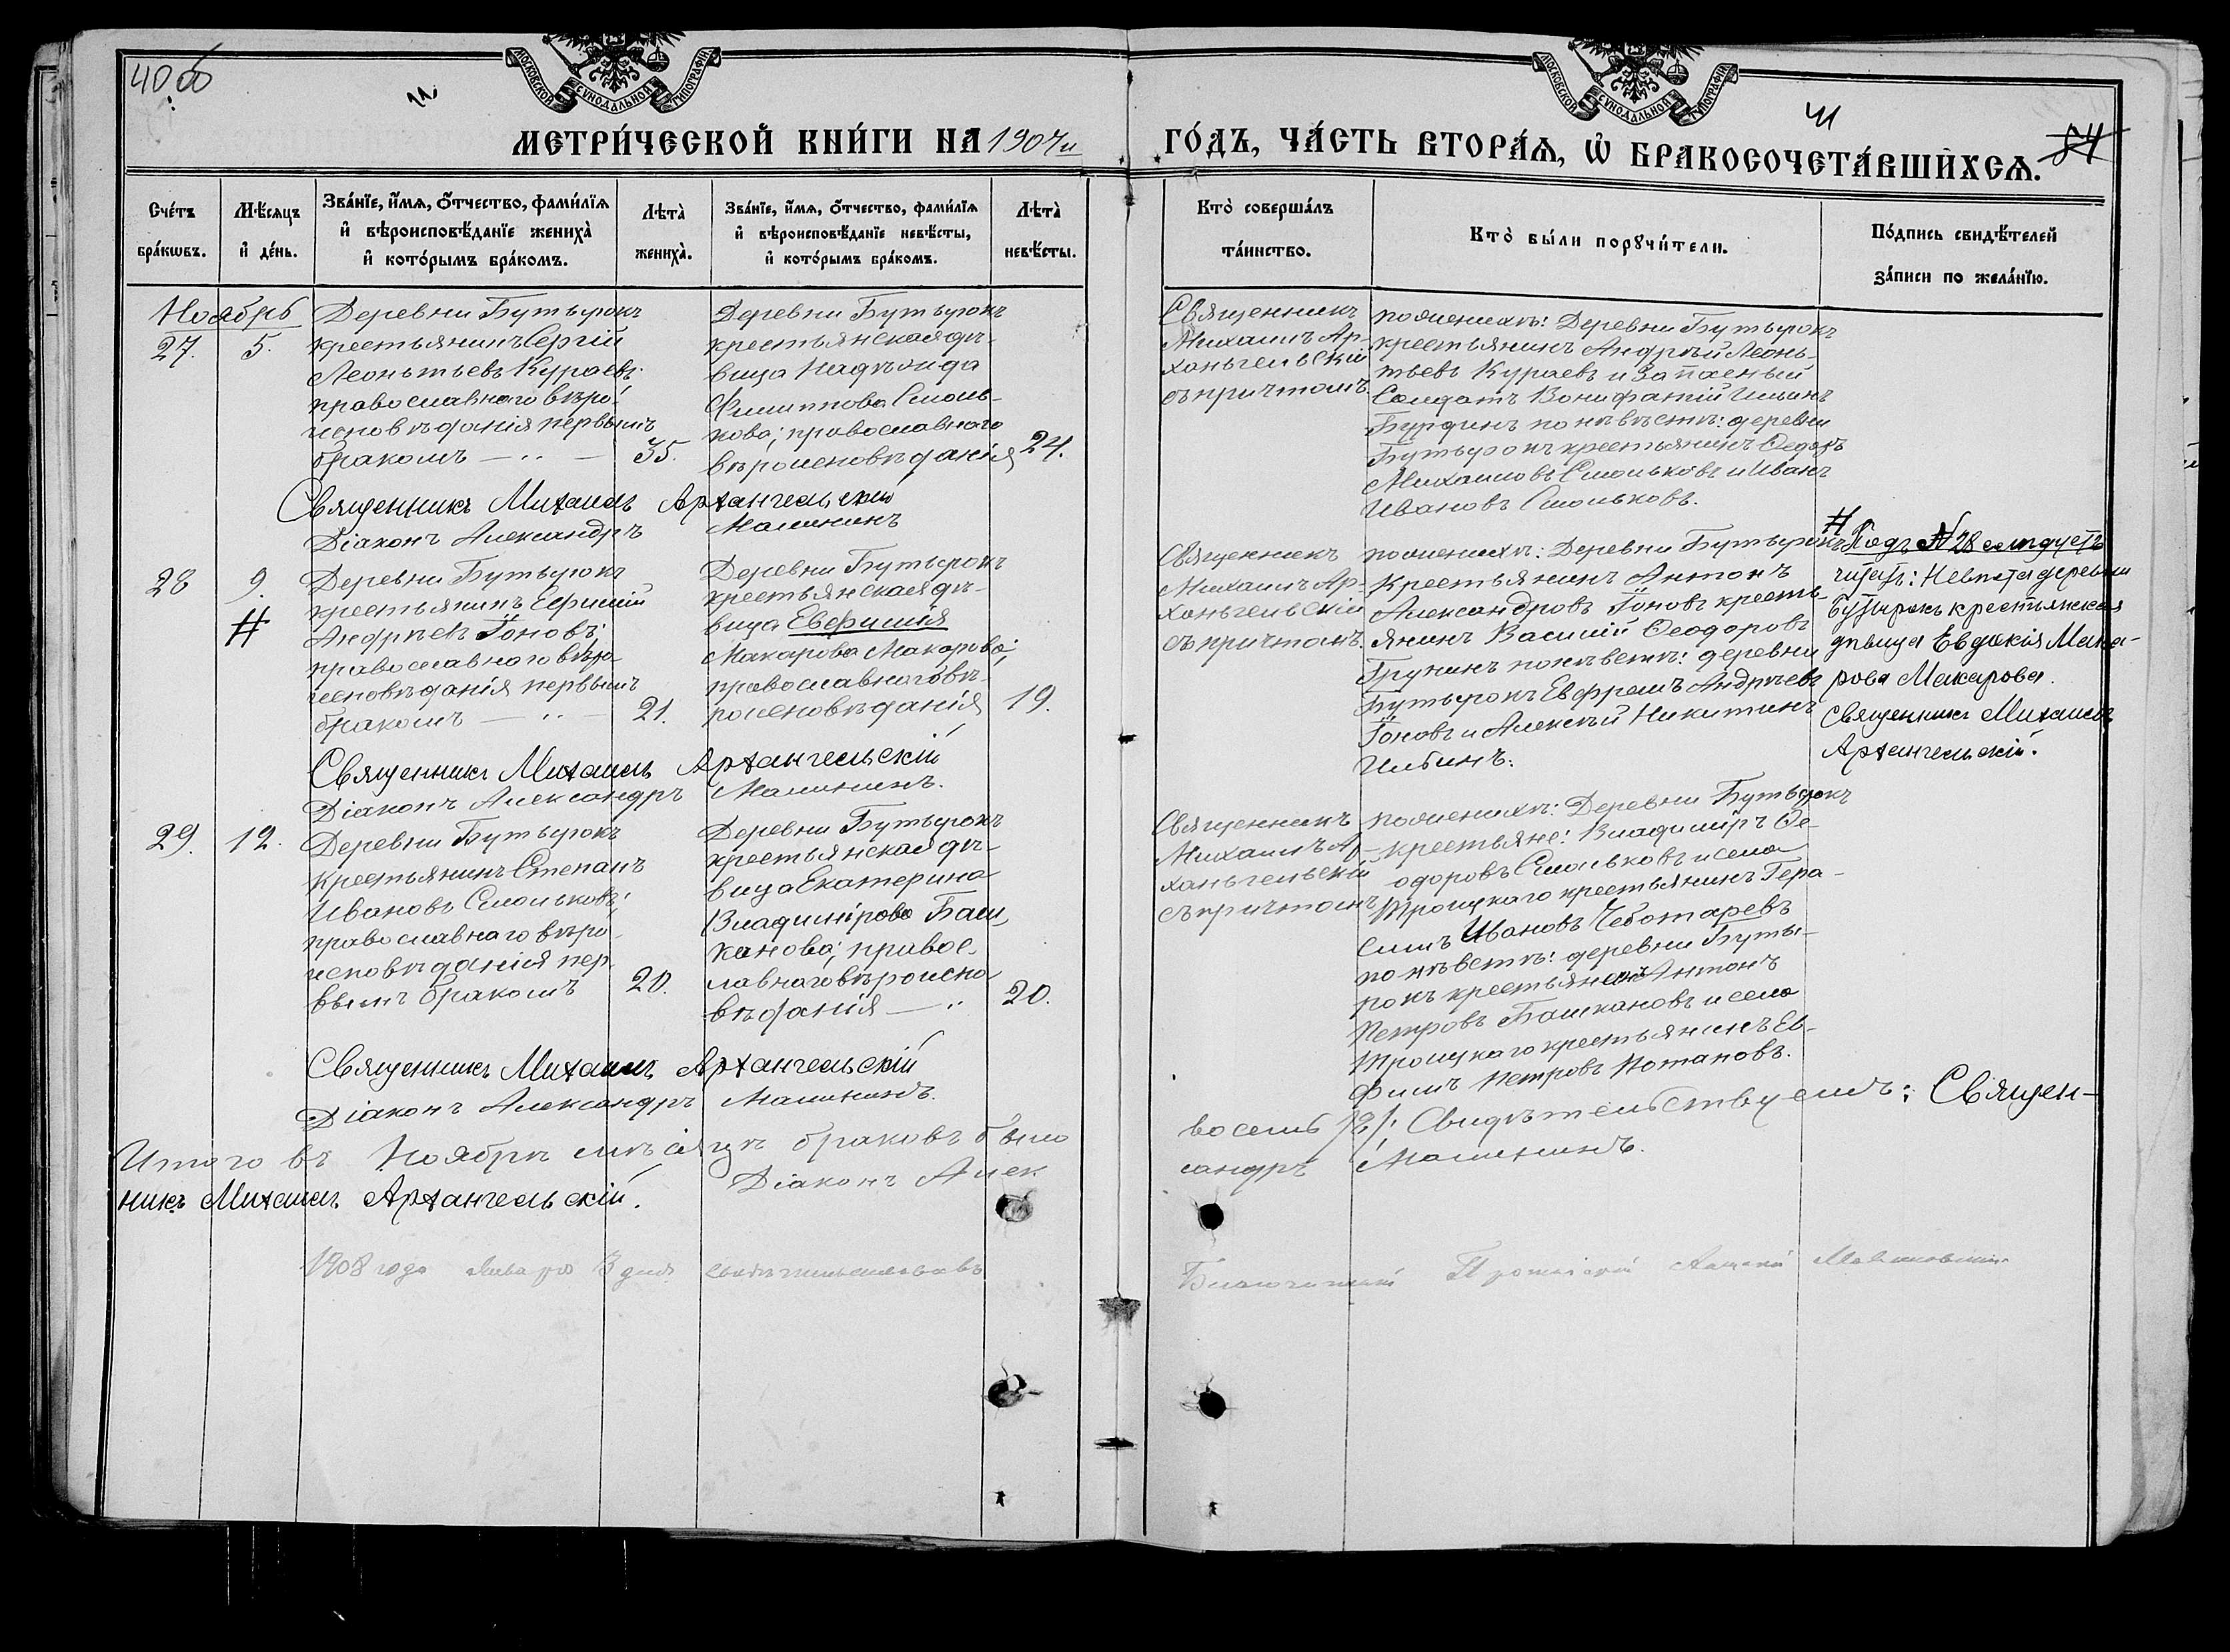 40 об
МОСКОВСКОЙ СѴНОДАЛЬНОЙ ТИПОГРАФІИ
МОСКОВСКОЙ СѴНОДАЛЬНОЙ ТИПОГРАФІИ
41
54
МЕТРИ́ЧЕСКОЙ КНИ́ГИ НА 1907й
ГО́ДЪ, ЧА́СТЬ ВТОРА́Ѧ, Ѿ БРАКОСОЧЕТА́ВШИХСѦ.
Сче́тъ
бра́кѡвъ.
Мѣ́сяцъ
и҆ де́нь.
Зва́нїе, и҆́мѧ, ѻ҆́тчество, фами́лїѧ
и҆ вѣроисповѣ́данїе жениха̀
и҆ кото́рымъ бра́комъ.
Лѣта̀
жениха̀.
Зва́нїе, и҆́мѧ, ѻ҆́тчество, фами́лїѧ
и҆ вѣроисповѣ́данїе невѣ́сты,
и҆ кото́рымъ бра́комъ.
Лѣта̀
невѣ́сты.
Кто̀ соверша́лъ
та́инство.
Кто̀ бы́ли порꙋчи́тели.
По́дпись свидѣ́телей
за́писи по жела́нїю.
Ноябрь
27.
5.
Деревни Бутырокъ
крестьянинъ Сергій
Леонтьевъ Кураевъ;
православнаго вѣро-
исповѣданія первымъ
бракомъ — ·· —
35.
Деревни Бутырокъ
крестьянская дѣ-
вица Надѣжда
Филиппова Смоль-
кова; православнаго
вѣроисповѣданія
24.
Священникъ
Михаилъ Ар-
хангельскій
съ причтомъ.
по женихѣ: Деревни Бутырокъ
крестьянинъ Андрѣй Леонь-
тьевъ Кураевъ и Запасный
Солдатъ Вонифатій Ильинъ
Бурдинъ по невѣстѣ: деревни
Бутырокъ крестьянинъ Ѳедоръ
Михаиловъ Смольковъ и Иванъ
Ивановъ Смольковъ.
Священникъ Михаилъ Архангельскій
Діаконъ Александръ Малининъ
28
9.
#
Деревни Бутырокъ
крестьянинъ Ефимій
Андрѣевъ Їоновъ;
православнаго вѣро-
исповѣданія первымъ
бракомъ — ·· —
21.
Деревни Бутырокъ
крестьянская дѣ-
вица Евфимія
Макарова Макарова;
православнаго вѣ-
роисповѣданія
19.
Священникъ
Михаилъ Ар-
хангельскій
съ причтомъ.
по женихѣ: Деревни Бутырокъ
крестьянинъ Антонъ
Александровъ Їоновъ кресть-
янинъ Василій Ѳеодоровъ
Грунинъ по невѣстѣ: деревни
Бутырокъ Евфремъ Андрѣевъ
Їоновъ и Алексѣй Никитинъ
# Подъ № 28 слѣдуетъ
читать: Невѣста деревни
Бутырокъ крестьянская
дѣвица Евдокія Мака-
рова Макарова.
Священникъ Михаилъ
Архангельскій.
Священникъ Михаилъ Архангельскій
Діаконъ Александръ Малининъ.
29.
12.
Деревни Бутырокъ
крестьянинъ Степанъ
Ивановъ Смольковъ;
православнаго вѣро-
исповѣданія пер-
вымъ бракомъ
20.
Деревни Бутырокъ
крестьянская дѣ-
вица Екатерина
Владимірова Баш-
канова; правос-
лавнаго вѣроиспо-
вѣданія — ··
20.
Священникъ
Михаилъ Ар-
хангельскій
съ причтомъ
по женихѣ: Деревни Бутырокъ
крестьяне: Владиміръ Ѳе-
одоровъ Смольковъ и села
Троицкаго крестьянинъ Гера-
симъ Ивановъ Чеботаревъ
по невѣстѣ: деревни Буты-
рокъ крестьянинъ Антонъ
Петровъ Башкановъ и села
Троицкаго крестьянинъ Ев-
фимъ Петровъ Потаповъ.
Священникъ Михаилъ Архангельскій
Діаконъ Александръ Малининъ.
Итого въ Ноябрѣ мѣсяцѣ браковъ было восемь /8/. Свидѣтельствуемъ: Священ-
никъ Михаилъ Архангельскій. Діаконъ Александръ Малининъ.
1908 года Января 3 дня свидѣтельствовалъ Благочинный